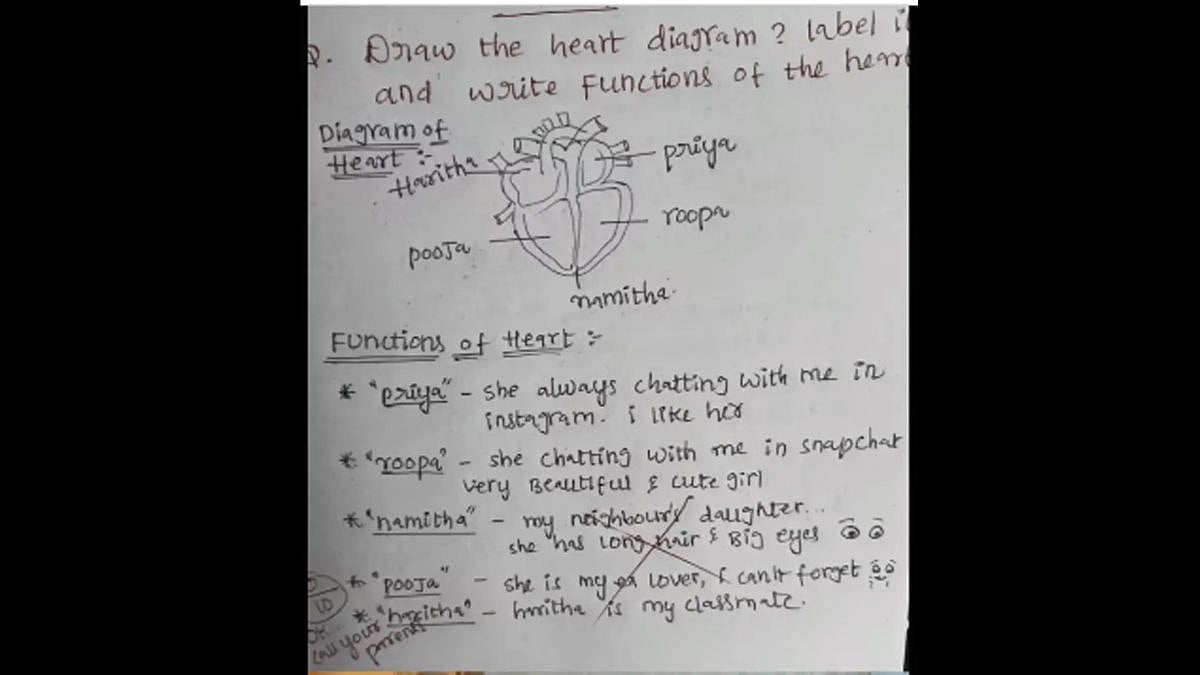 Q. Draw the heart diagram ? label i
and write Functions of the hear
Diagram of
Heart :-
Haritha
priya
roopa
pooja
namitha.
Functions of Heart :-
* "priya" - she always chatting with me in
instagram. i like her
* "roopa" - she chatting with me in snapchat
very Beautiful & cute girl
* "namitha" - my neighbour's daughter...
she has long hair & Big eyes
* "pooja" - she is my ex lover, I can't forget
* "haritha" - haritha is my classmate.
10
OK...
call your
parents